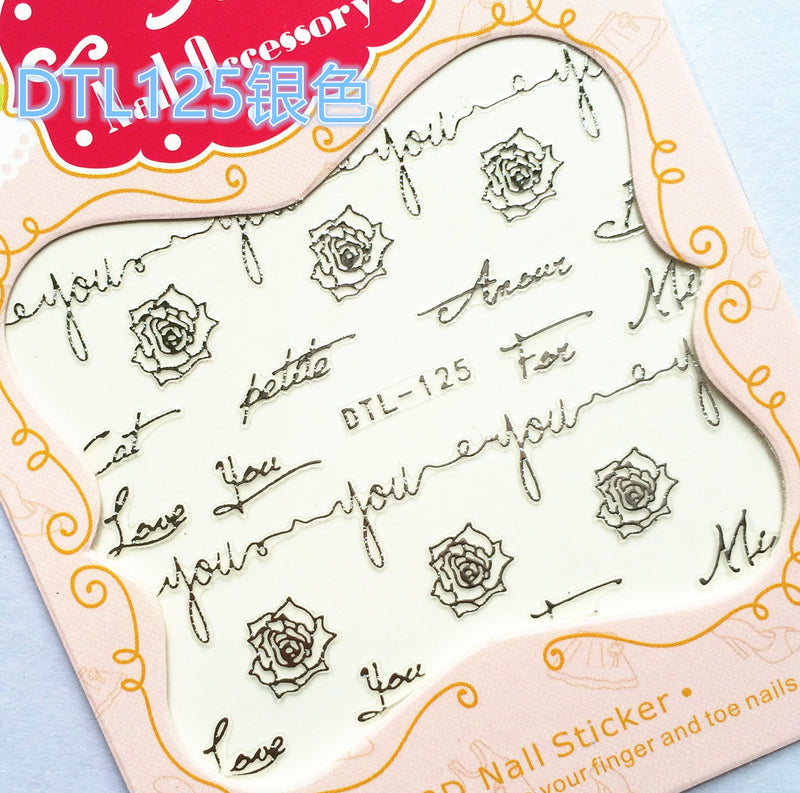 Nail Accessory
DTL125银色
you you you you
Amour
petite For Mi
DTL-125
Cat
Love You
you you you
Mi
Love You
3D Nail Sticker
your finger and toe nails